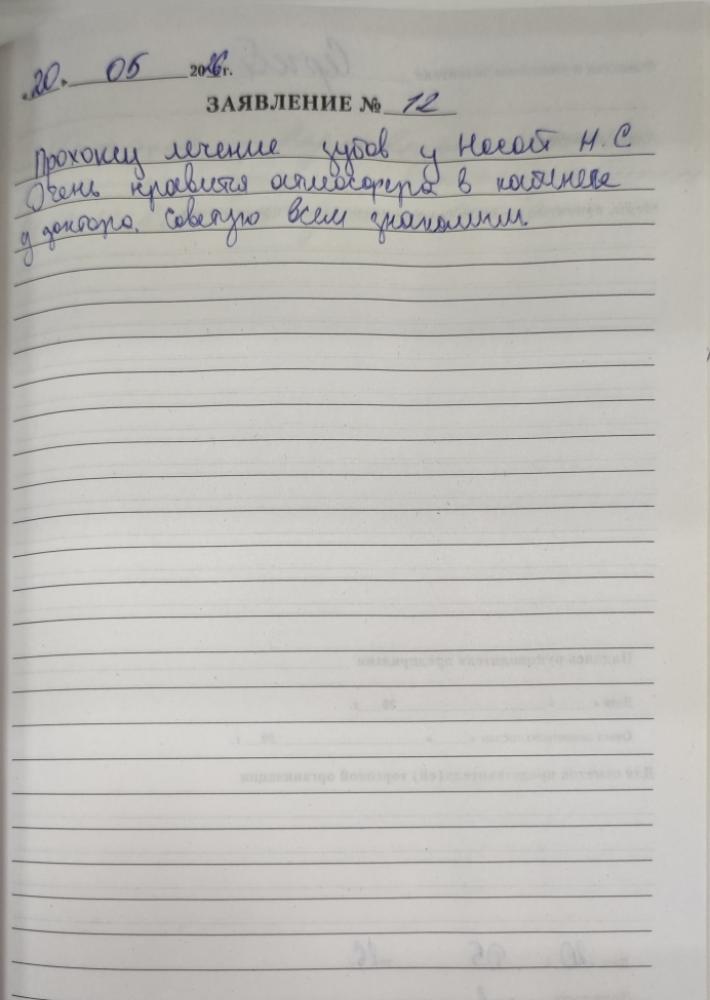 20. 05 2026г.
ЗАЯВЛЕНИЕ № 12
Прохожу лечение зубов у Н. С
Очень нравится атмосфера в кабинете
у доктора. Советую всем знакомым.